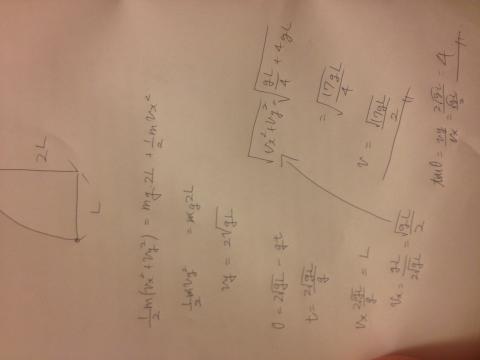 2L
L
½m(vx²+vy²) = mg2L + ½mvx²
½mvy² = mg2L
vy = 2√gL
0 = 2√gL - gt
t = 2√gL/g
vx 2√gL/g = L
vx = gL/2√gL = √gL/2
√vx²+vy² = √gL/4 + 4gL
= √17gL/4
v = √17gL/2
tanθ = vy/vx = 2√gL/(√gL/2) = 4